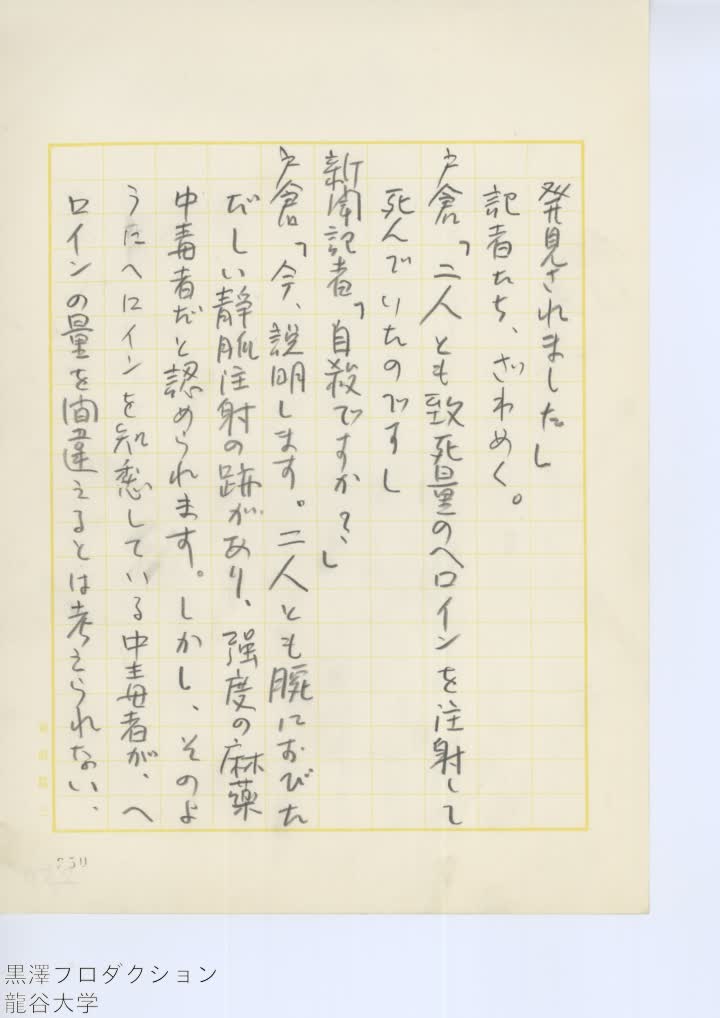 発見されました」
記者たち、ざわめく。
戸倉「二人とも致死量のヘロインを注射して
死んでいたのです」
新聞記者「自殺ですか？」
戸倉「今、説明します。二人とも腕におびた
だしい静脈注射の跡があり、強度の麻薬
中毒者だと認められます。しかし、そのよ
うにヘロインを知悉している中毒者が、ヘ
ロインの量を間違えるとは考えられない、
黒澤プロダクション
龍谷大学